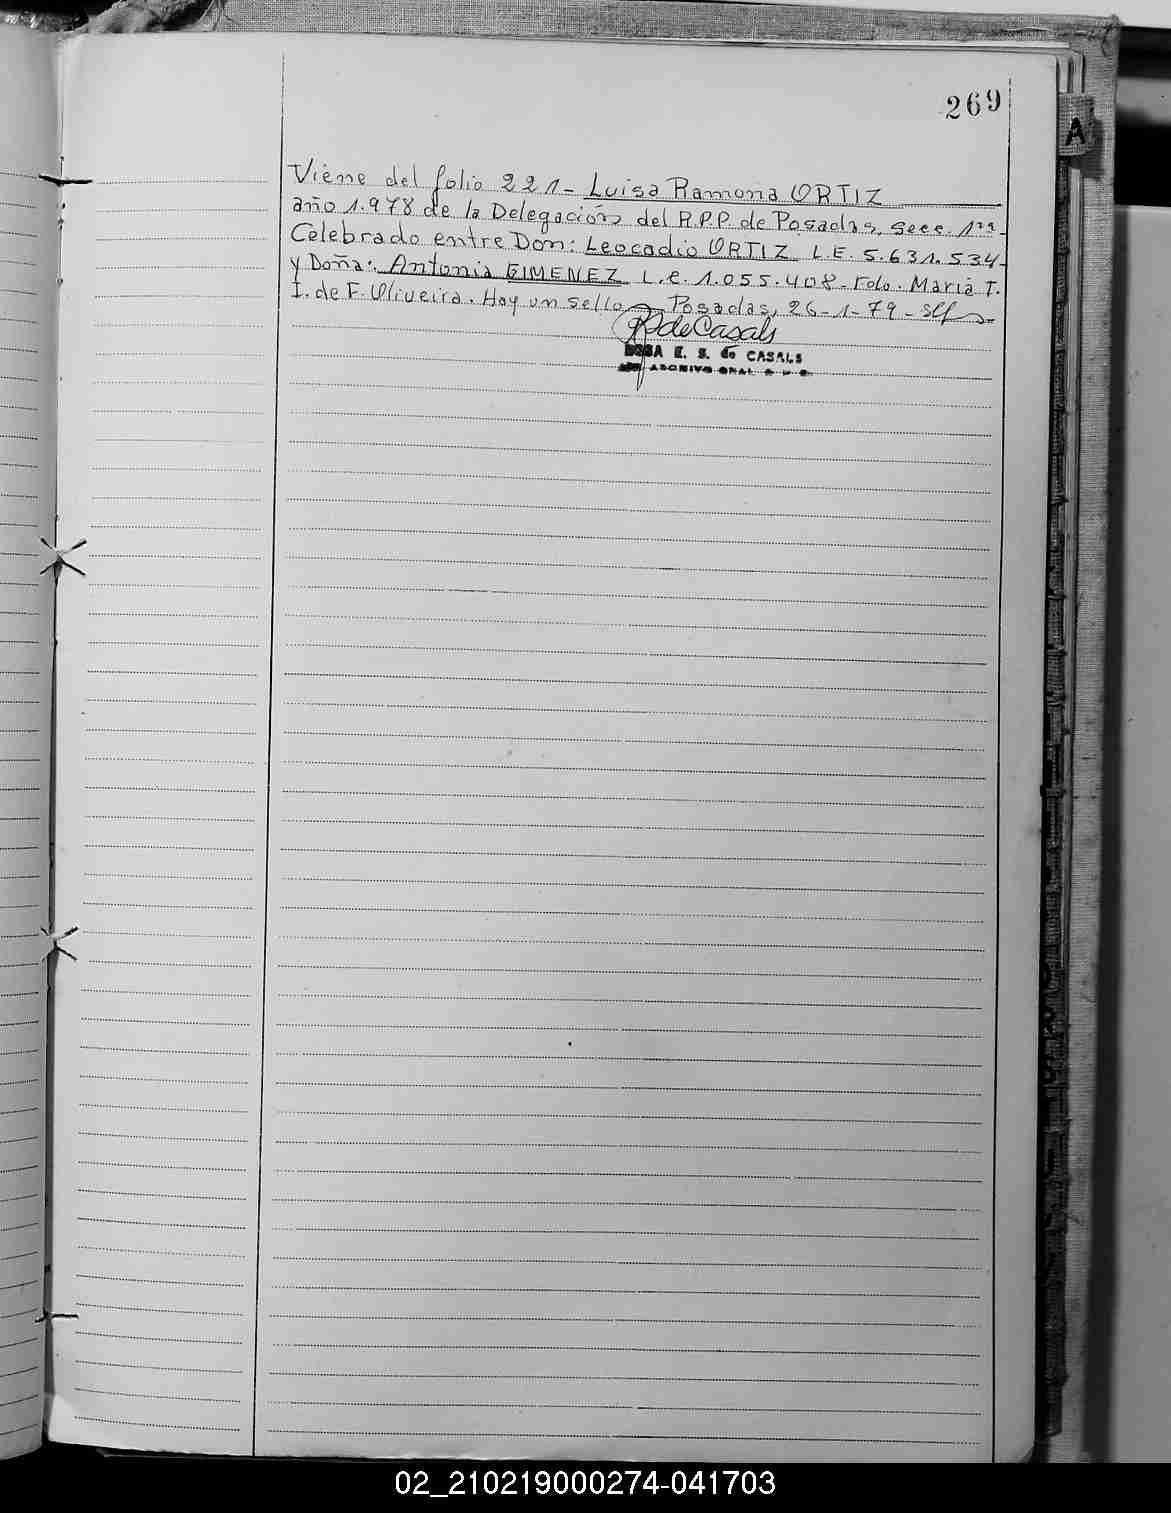 269
A
Viene del folio 221- Luisa Ramona ORTIZ
año 1.978 de la Delegación del R.P.P. de Posadas, Secc. 1ra-
Celebrado entre Don: Leocadio ORTIZ L.E. 5.631.534-
y Doña: Antonia GIMENEZ L.C. 1.055.408- Fdo. Maria T.
I. de F. Oliveira. Hay un sello Posadas, 26-1-79-
RdeCasals
ROSA E. S. de CASALS
ARCHIVO GRAL
02_210219000274-041703